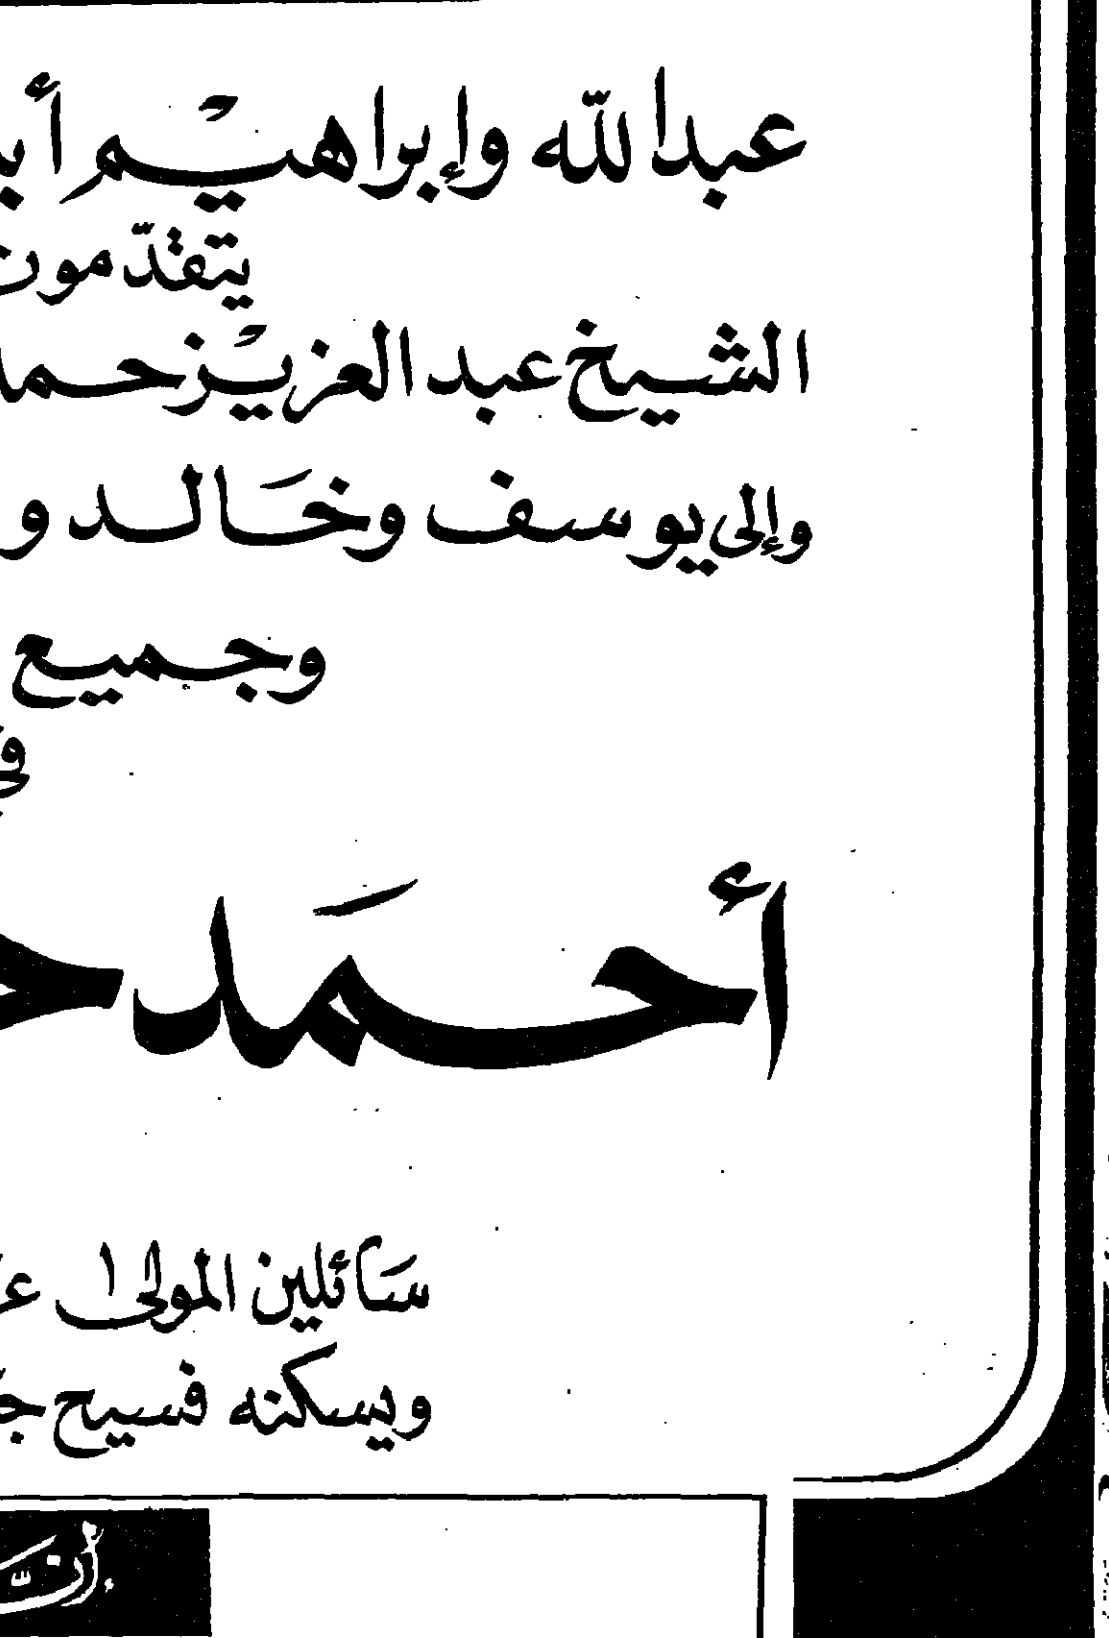 عبدالله وإبراهيم
يتقدّمون
الشيخ عبد العزيز
وإلى يوسف وخالد و
وجميع
أحمد
سائلين المولى
ويسكنه فسيح